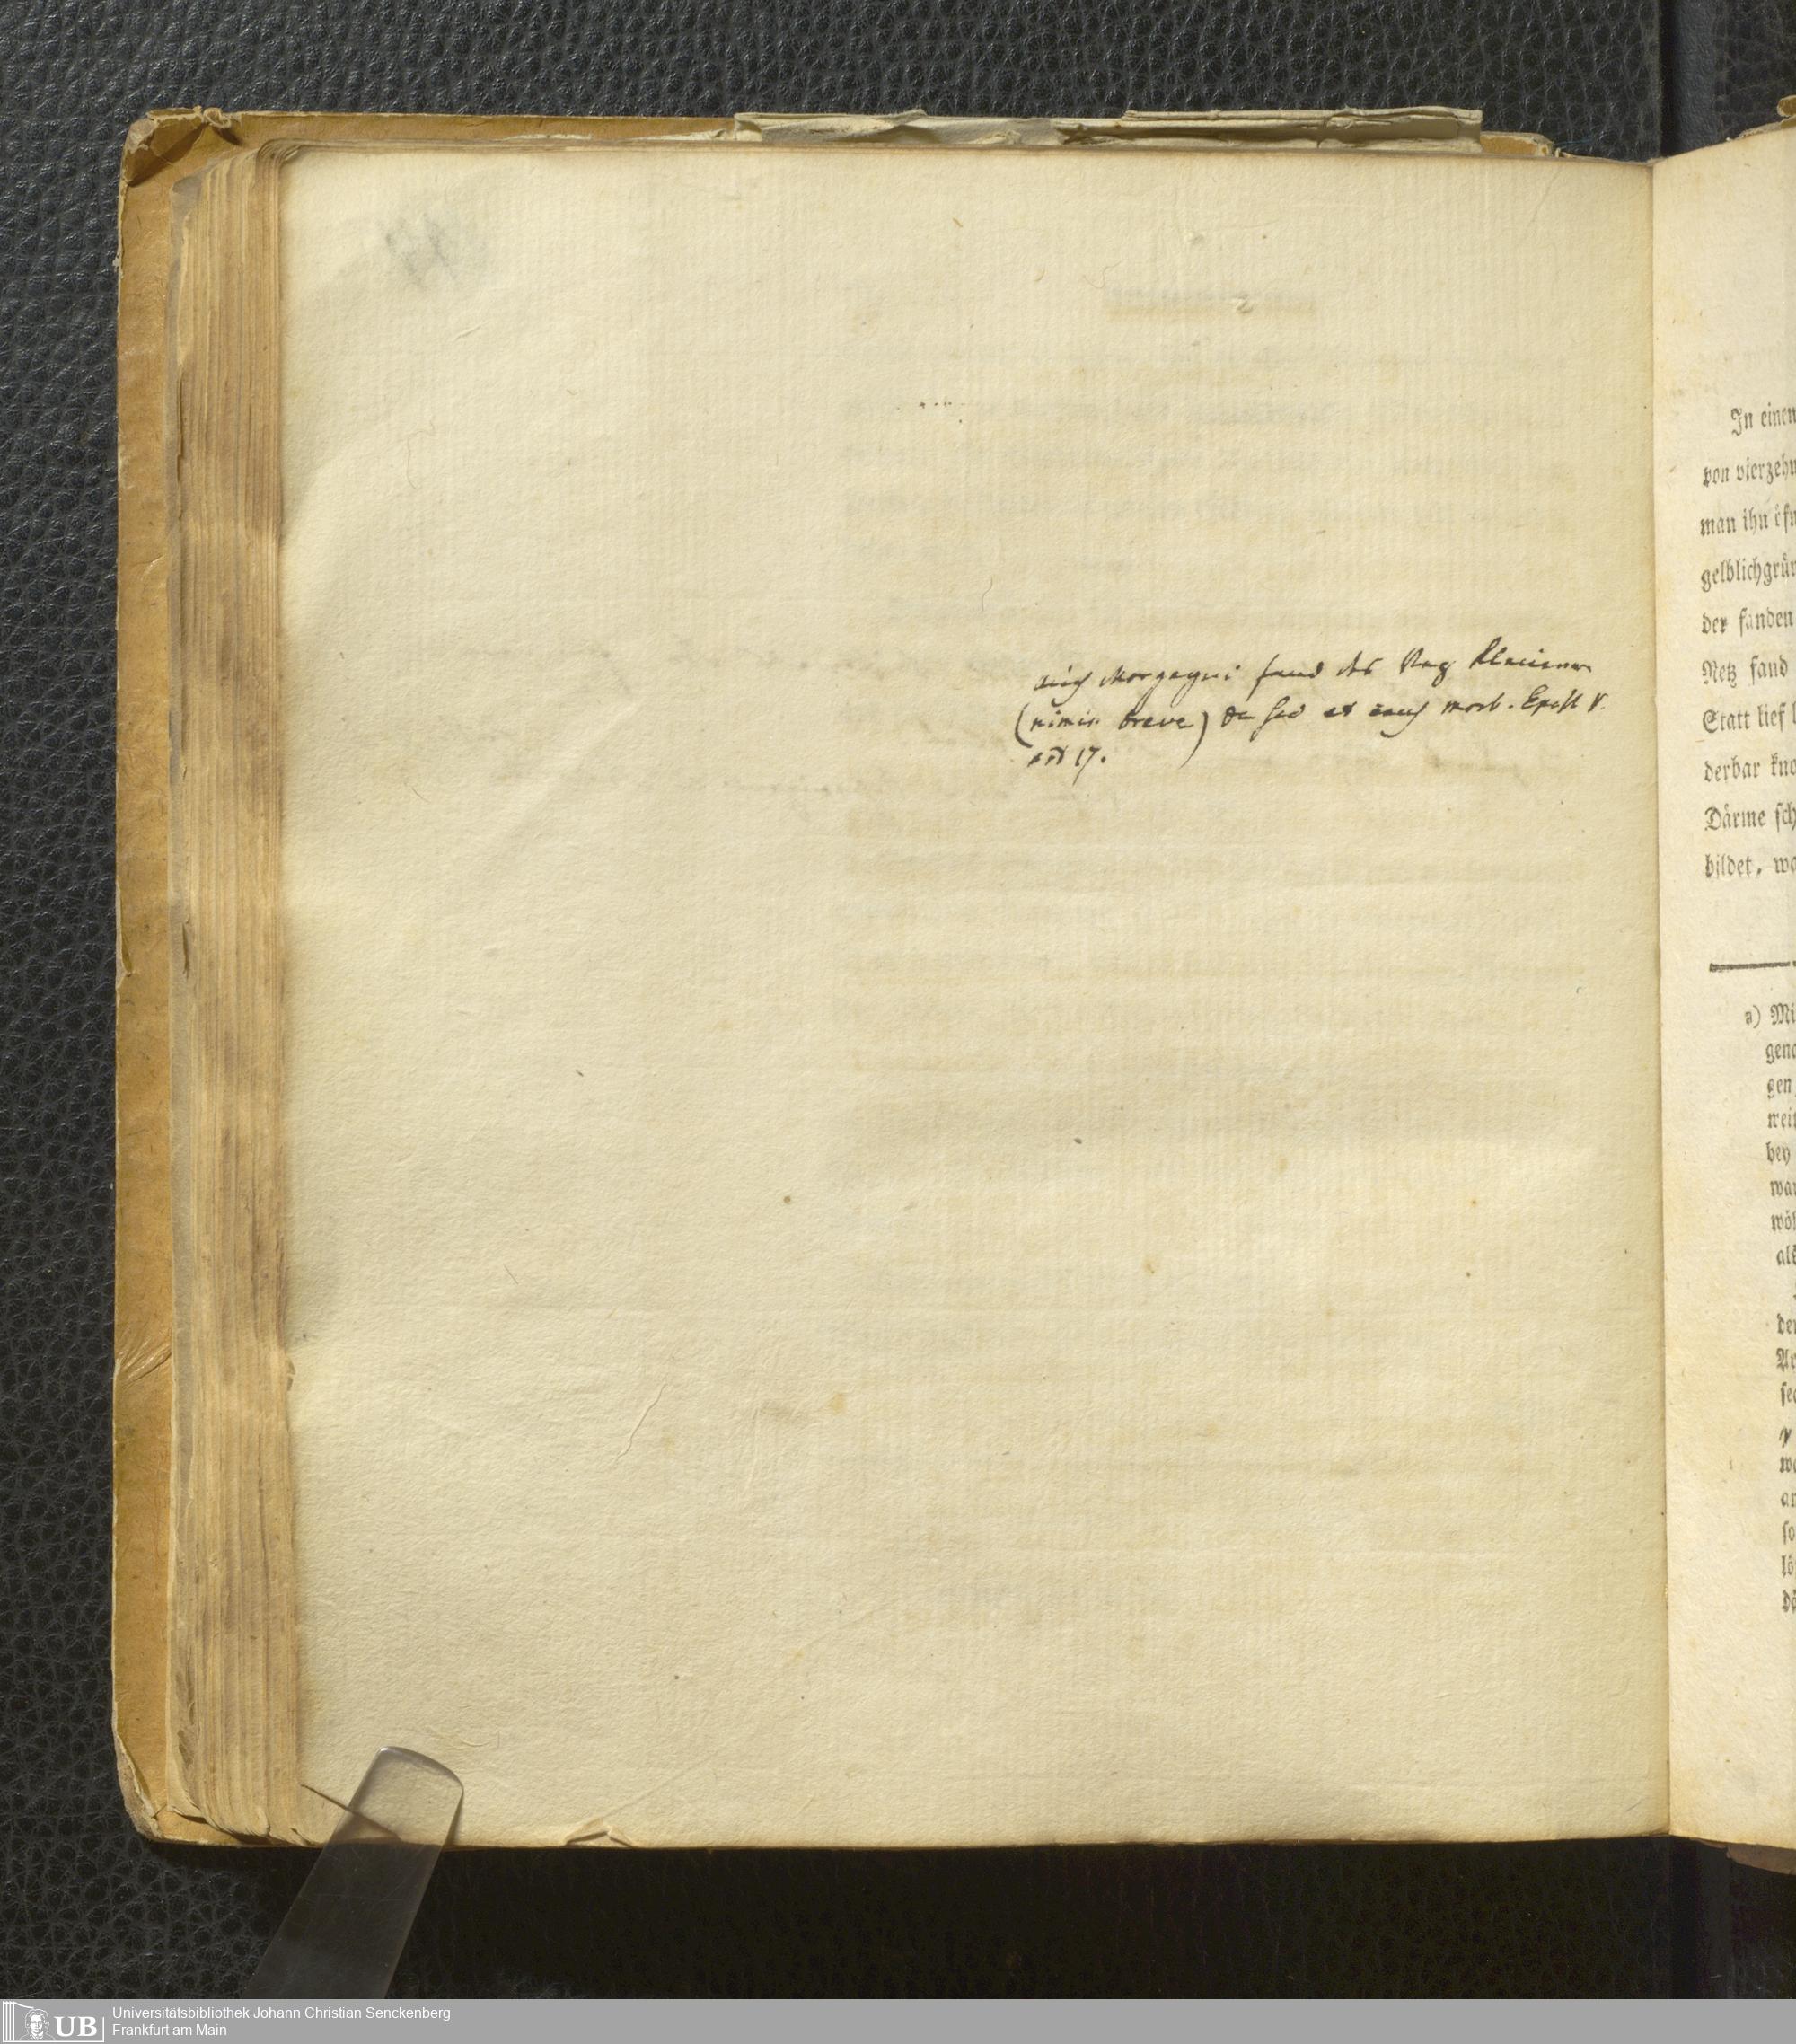 auch Morgagni fand das Netz kleiner
(nimis breve) De sed et caus morb. Epist V.
art 17.
In einen
von vierzehn
man ihn öfn
gelblichgrün
der fanden
Netz fand
Statt lief
derbar kno
Därme sch
bildet, wa
a) Mi
gena
gen
wei
bey
war
wöh
als
der
se
we
an
so
lö
Dä
UB
Universitätsbibliothek Johann Christian Senckenberg
Frankfurt am Main